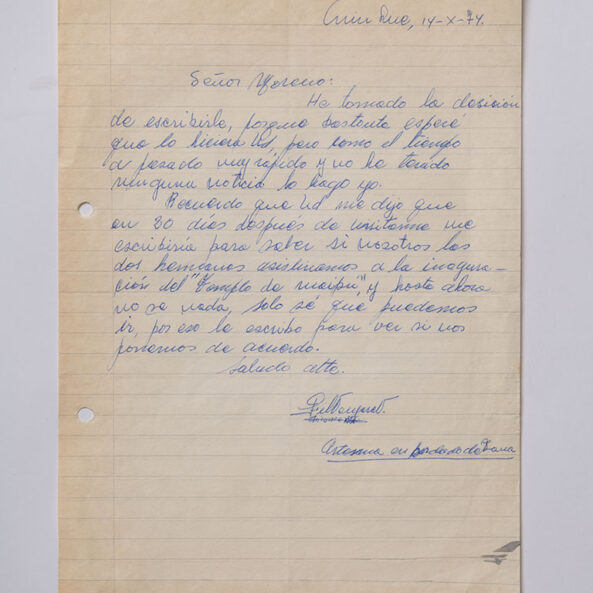 14-X-74.
Señor Moreno:
He tomado la desición
de escribirle, porque bastante esperé
que lo hiciera Ud, pero como el tiempo
a pasado muy rápido y no he tenido
ninguna noticia lo hago yo.
Recuerdo que Ud me dijo que
en 20 días después de visitarme me
escribiría para saber si nosotros las
dos hermanas asistiríamos a la inagura-
ción del "Templo de maipú", y hasta ahora
no se nada, solo sé que quedamos
ir, por eso le escribo para ver si nos
ponemos de acuerdo.
Saludo atte.
Artesana en bordado de lana